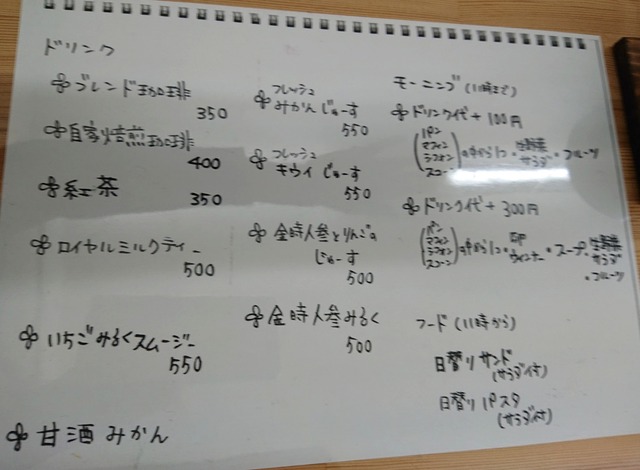 ドリンク
ブレンド珈琲
350
自家焙煎珈琲
400
紅茶
350
ロイヤルミルクティー
500
いちごみるくスムージー
550
甘酒みかん
フレッシュ
みかんじゅーす
550
フレッシュ
キウイじゅーす
550
金時人参とりんごの
じゅーす
500
金時人参みるく
500
モーニング(11時まで)
ドリンク代+100円
パン
マフィン
シフォン
スコーン
の中から1コ・生野菜サラダ・フルーツ
ドリンク代+300円
パン
マフィン
シフォン
スコーン
の中から1コ・ウインナー・スープ・生野菜サラダ
・フルーツ
フード(11時から)
日替りサンド
(サラダ付)
日替りパスタ
(サラダ付)